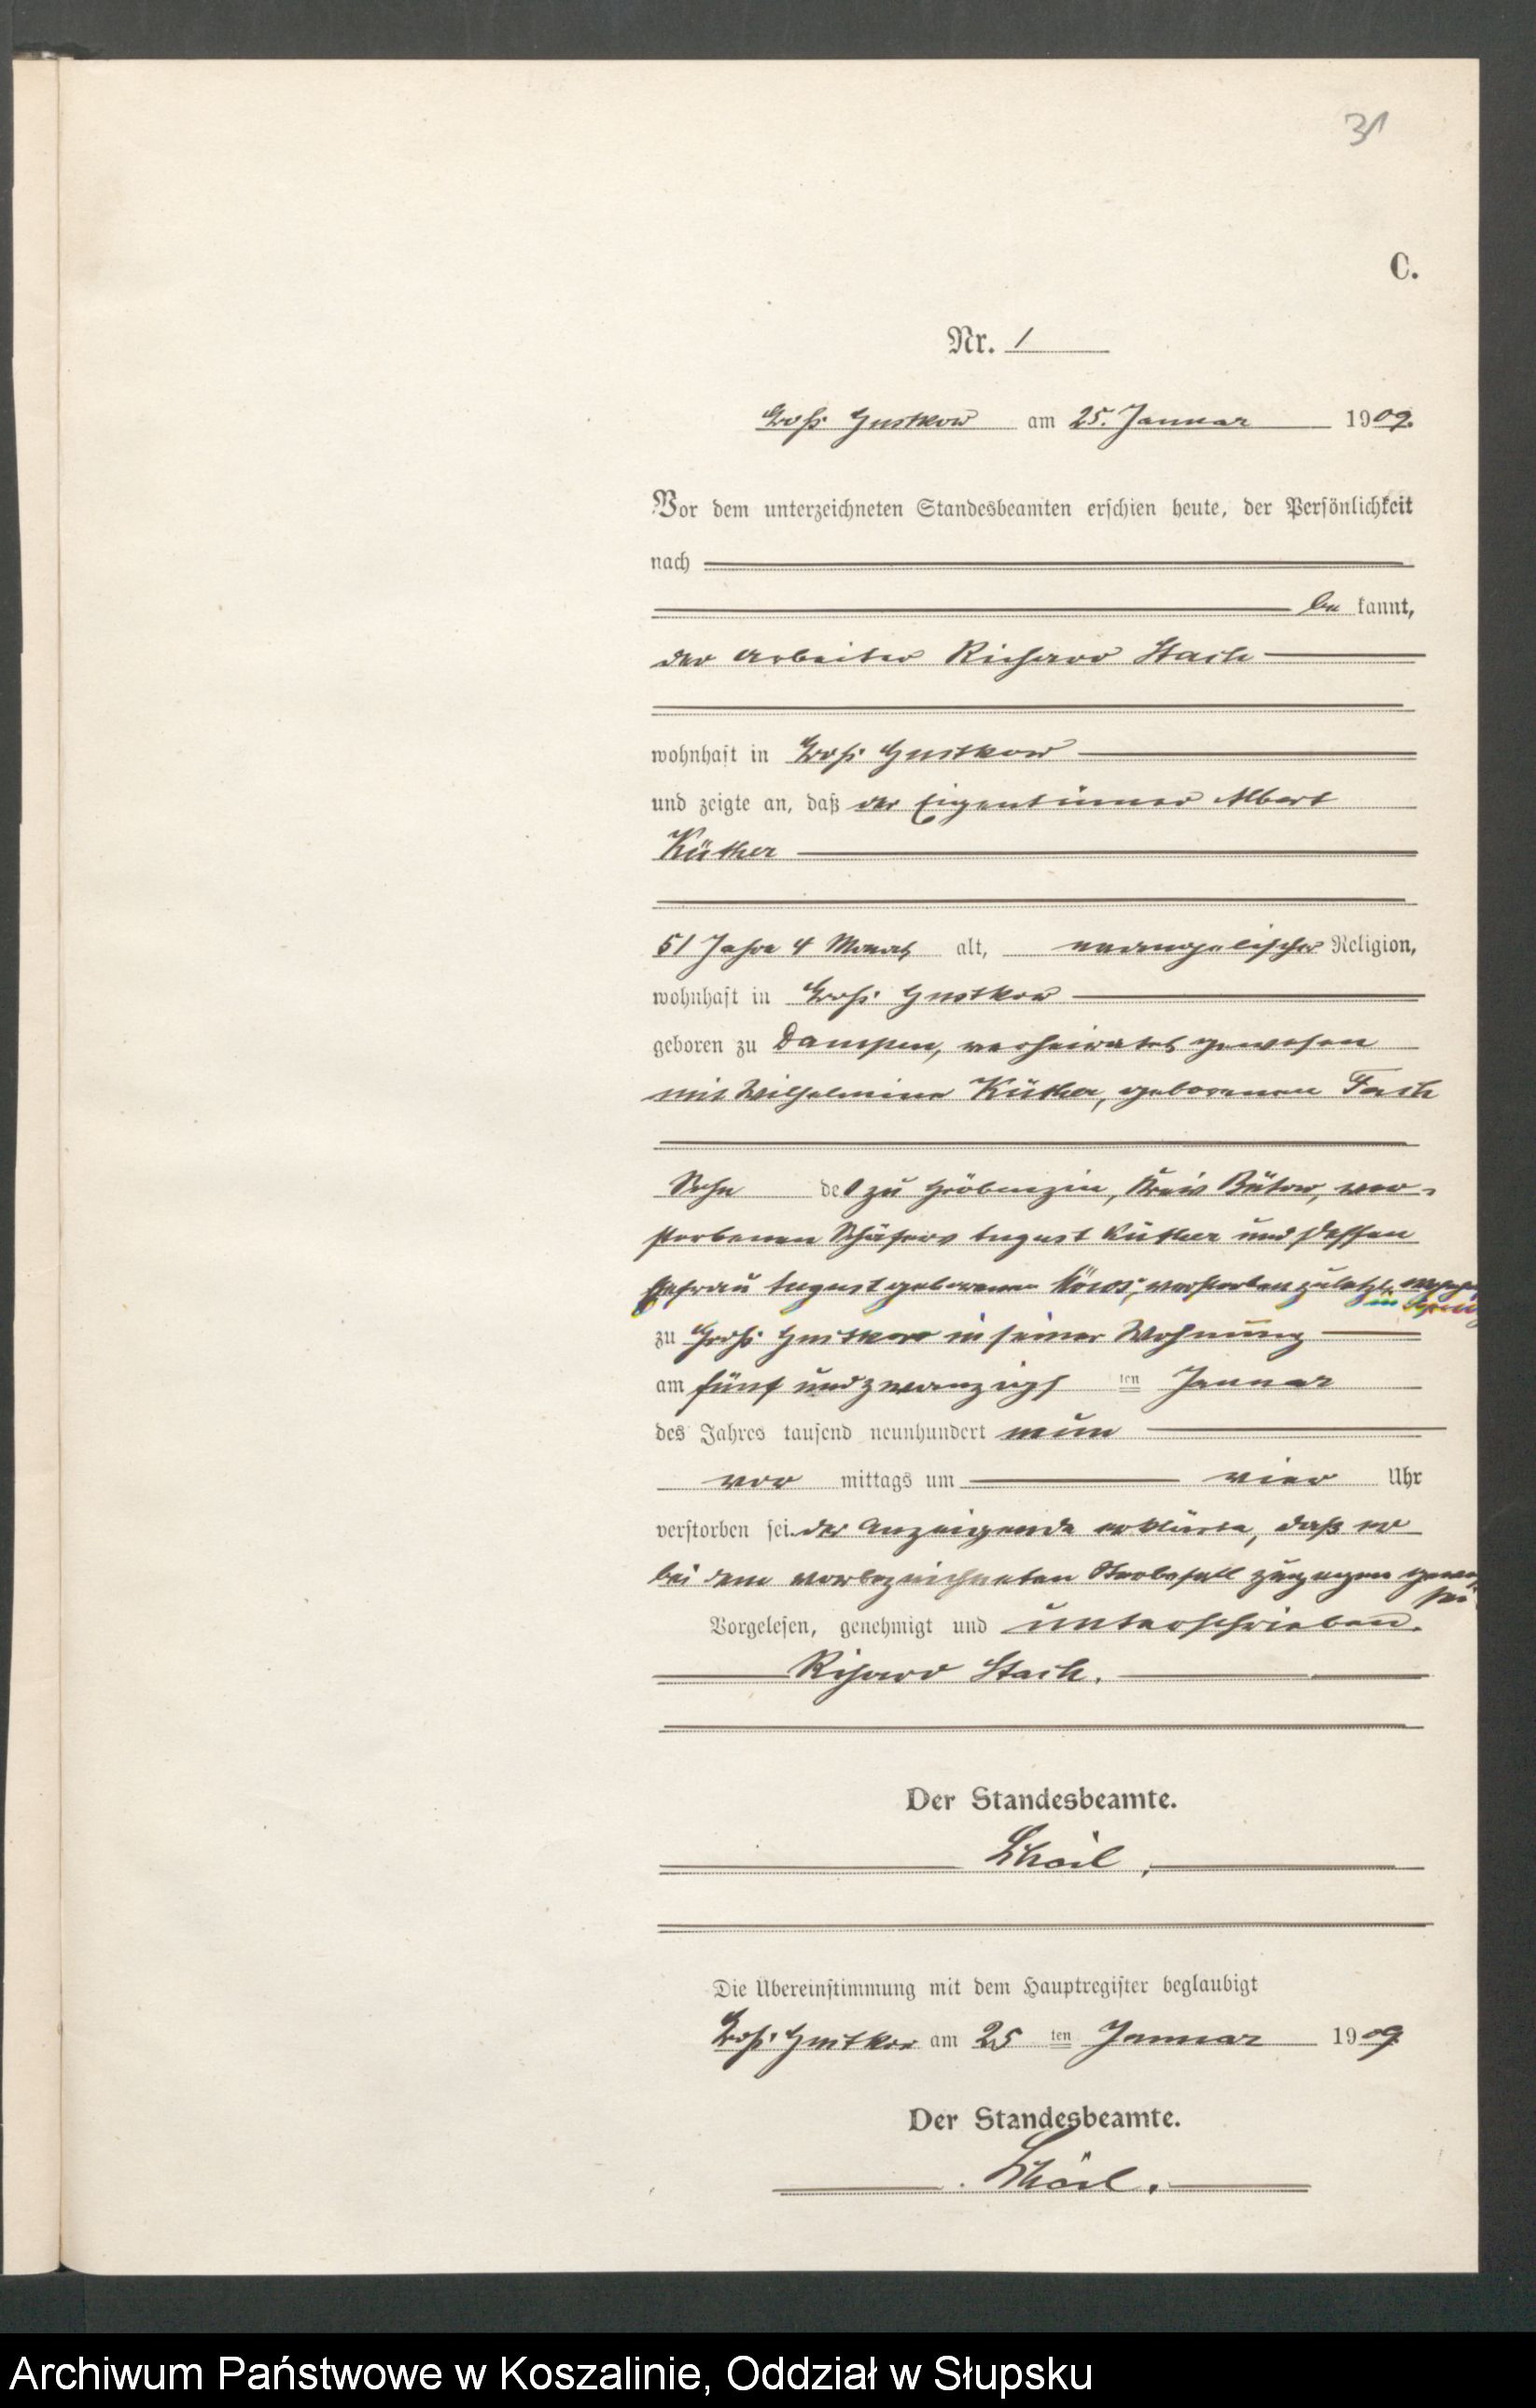 31
C.
Nr. 1
Groß Gustkow am 25. Januar 1909.
Vor dem unterzeichneten Standesbeamten erschien heute, der Persönlichkeit
nach
be kannt,
der Arbeiter Richard Stach
wohnhaft in Groß Gustkow
und zeigte an, daß der Eigentümer Albert
Küther
51 Jahre 4 Monat alt, evangelischer Religion,
wohnhaft in Groß Gustkow
geboren zu Dampen, verheiratet gewesen
mit Wilhelmine Küther, geborenen
Sohn des zu Gröbenzin, Kreis Bütow, ver-
storbenen Schäfers August Küther und dessen
Ehefrau August geborenen verstorben zuletzt
in
zu Groß Gustkow in seiner Wohnung
am fünf und zwanzigs ten Januar
des Jahres tausend neunhundert neun
vor mittags um vier Uhr
verstorben sei. der Anzeigende erklärte, daß er
bei dem vorbezeichneten Sterbefall zugegen
sei
Vorgelesen, genehmigt und unterschrieben.
Richard Stach.
Der Standesbeamte.
Die Übereinstimmung mit dem Hauptregister beglaubigt
Groß Gustkow am 25 ten Januar 1909
Der Standesbeamte.
Archiwum Państwowe w Koszalinie, Oddział w Słupsku